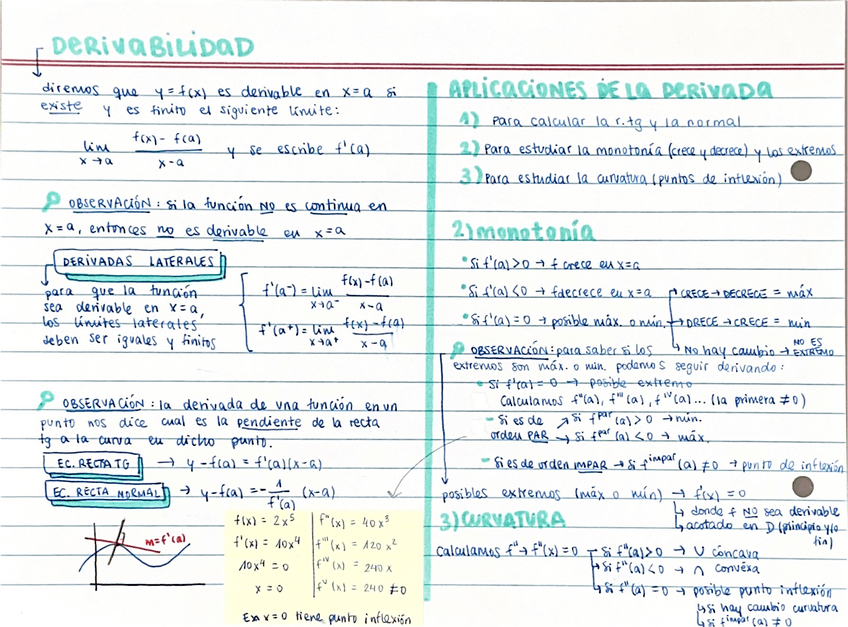 DERIVABILIDAD
diremos que y = f(x) es derivable en x=a si
existe y es finito el siguiente límite:
lim x→a f(x) - f(a) / x-a y se escribe f'(a)
OBSERVACIÓN: si la función NO es continua en
x=a, entonces no es derivable en x=a
DERIVADAS LATERALES
para que la función
sea derivable en x=a,
los límites laterales
deben ser iguales y finitos
f'(a⁻) = lim x→a⁻ f(x)-f(a) / x-a
f'(a⁺) = lim x→a⁺ f(x)-f(a) / x-a
OBSERVACIÓN: la derivada de una función en un
punto nos dice cual es la pendiente de la recta
tg a la curva en dicho punto.
EC. RECTA TG → y-f(a) = f'(a)(x-a)
EC. RECTA NORMAL → y-f(a) = - 1 / f'(a) (x-a)
m=f'(a)
f(x) = 2x⁵
f'(x) = 10x⁴
10x⁴ = 0
x = 0
f''(x) = 40x³
f'''(x) = 120x²
f^IV(x) = 240x
f^V(x) = 240 ≠0
En x=0 tiene punto inflexión
APLICACIONES DE LA DERIVADA
1) Para calcular la r.tg y la normal
2) Para estudiar la monotonía (crece y decrece) y los extremos
3) Para estudiar la curvatura (puntos de inflexión)
2) monotonía
• Si f'(a) > 0 → f crece en x=a
• Si f'(a) < 0 → f decrece en x=a
• Si f'(a) = 0 → posible máx. o mín.
→ CRECE → DECRECE = máx
→ DRECE → CRECE = min
→ No hay cambio → NO ES EXTREMO
OBSERVACIÓN: para saber si los
extremos son máx. o min. podemos seguir derivando:
- Si f'(a) = 0 → posible extremo
Calculamos f''(a), f'''(a), f^IV(a)... (la primera ≠ 0)
- Si es de orden PAR
→ Si f^par(a) > 0 → mín.
→ Si f^par(a) < 0 → máx.
- Si es de orden IMPAR → Si f^impar(a) ≠ 0 → punto de inflexión
posibles extremos (máx o mín) → f'(x) = 0
↳ donde f NO sea derivable
↳ acotado en D (principio y/o
fin)
3) CURVATURA
Calculamos f'' → f''(x) = 0
→ Si f''(a) > 0 → ∪ cóncava
→ Si f''(a) < 0 → ∩ convéxa
→ Si f''(a) = 0 → posible punto inflexión
↳ Si hay cambio curvatura
↳ Si f^impar(a) ≠ 0